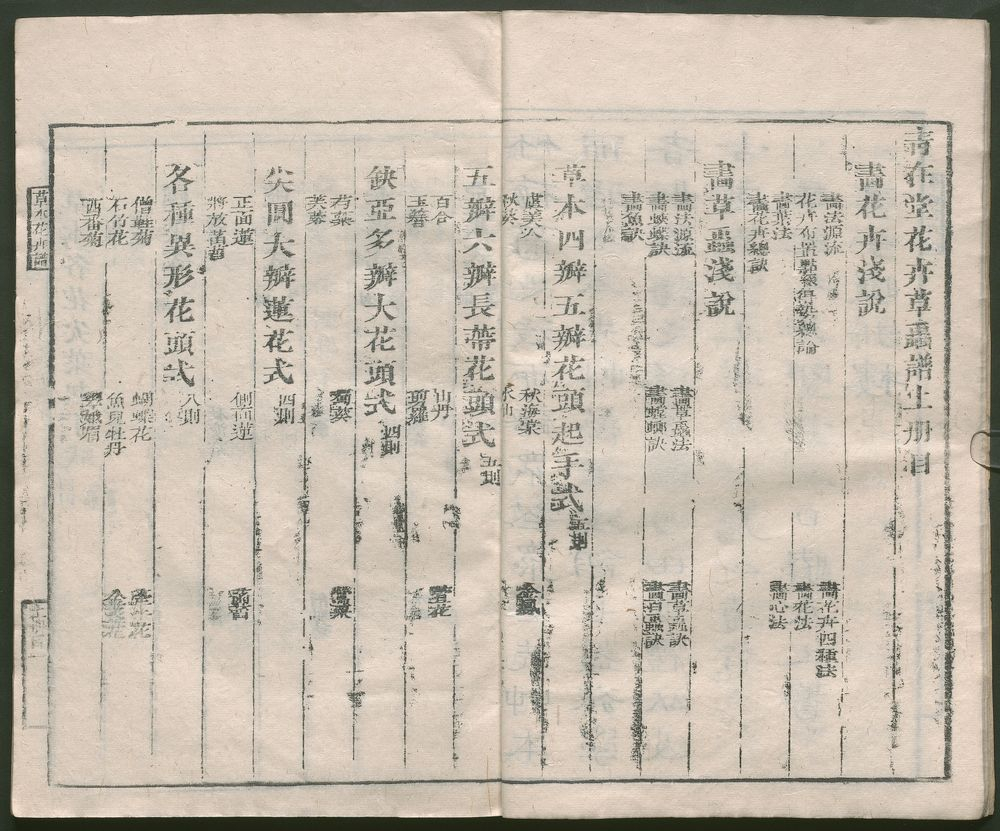 青在堂花卉草蟲譜上册目
畫花卉淺說
畫法源流
畫花卉四種法
花卉布置點綴得勢總論
畫花法
畫葉法
畫心法
畫花卉總訣
畫草蟲淺說
畫法源流
畫草蟲法
畫草蟲訣
畫蛺蝶訣
畫螳螂訣
畫百蟲訣
畫魚訣
草本四瓣五瓣花頭起手式 五則
虞美人
秋海棠
金鳳
秋葵
水仙
五瓣六瓣長蒂花頭式 五則
百合
山丹
萱花
玉簪
剪羅
缺亞多瓣大花頭式 四則
芍藥
蜀葵
罌粟
芙蓉
尖圓大瓣蓮花式 四則
正面蓮
側面蓮
菡萏
將放菡萏
各種異形花頭式 八則
僧鞋菊
蝴蝶花
石竹花
魚兒牡丹
西番菊
草本花卉譜